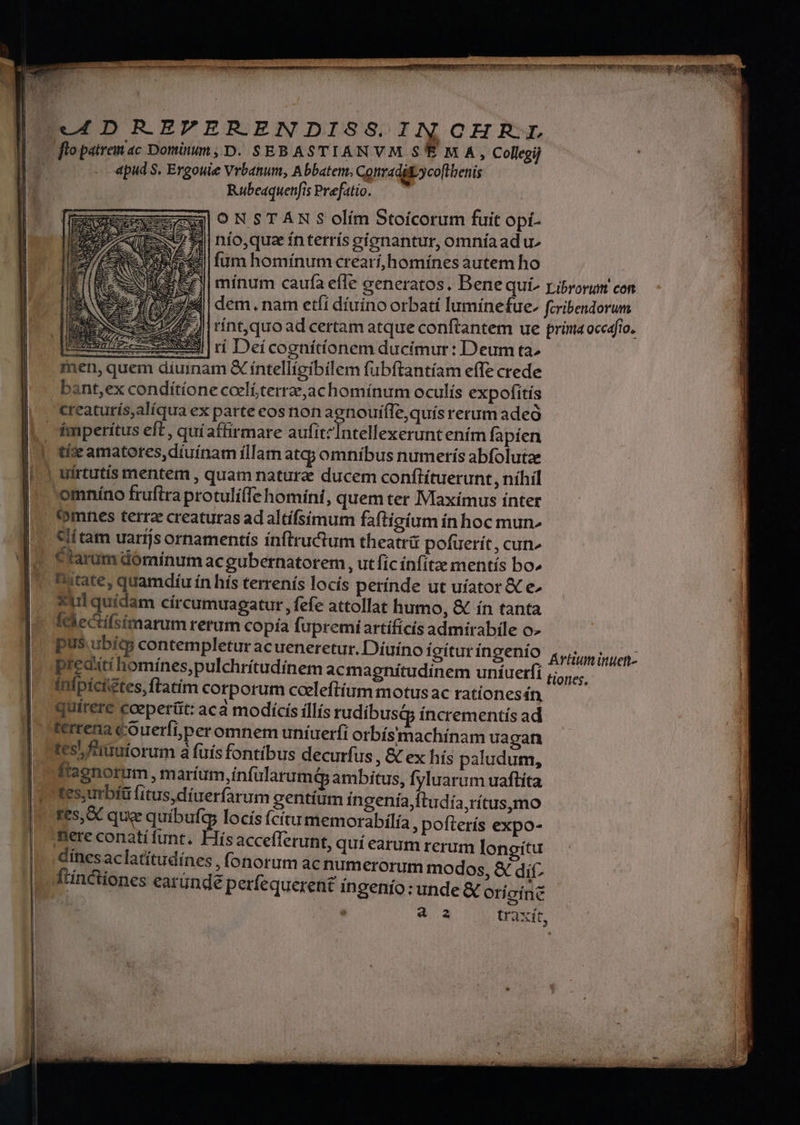 AD REVERENDISS. IN CHRI
ſto patrem ac Dominum, D. SEBASTIANVM SEMA, Collegij
apud S. Ergouie Vrbanum, Abbatem, Conradi Lycoſthenis
Rubeaquenſis Præfatio.
ONSTANS olim Stoicorum fuit opi-
nio, quæ in terris gignantur, omnia ad u-
ſum hominum creari, homines autem ho
minum cauſa eſſe generatos. Bene qui-
dem. nam etſi diuino orbati lumine fue-
rint, quo ad certam atque conſtantem ue
ri Dei cognitionem ducimur: Deum ta-
men, quem diuinam & intelligibilem ſubſtantiam eſſe crede
bant, ex conditione cœli, terræ, ac hominum oculis expoſitis
creaturis, aliqua ex parte eos non agnouiſſe, quis rerum adeò
imperitus eſt, qui affirmare auſit? Intellexerunt enim ſapien
tiæ amatores, diuinam illam atq; omnibus numeris abſolutæ
uirtutis mentem, quam naturæ ducem conſtituerunt, nihil
omnino fruſtra protuliſſe homini, quem ter Maximus inter
omnes terræ creaturas ad altiſsimum faſtigium in hoc mun-
di tam uarijs ornamentis inſtructum theatrũ poſuerit, cun-
ctarum dominum ac gubernatorem, ut ſic inſitæ mentis bo-
nitate, quamdiu in his terrenis locis perinde ut uiator & e-
xul quidam circumuagatur, ſeſe attollat humo, & in tanta
ſelectiſsimarum rerum copia ſupremi artificis admirabile o-
pus ubiq; contempletur ac ueneretur. Diuino igitur ingenio
prediti homines, pulchritudinem ac magnitudinem uniuerſi
inſpiciẽtes, ſtatim corporum cœleſtium motus ac rationes in
quirere cœperũt: ac à modicis illis rudibusq; incrementis ad
terrena cõuerſi, per omnem uniuerſi orbis machinam uagan
tes, fluuiorum à ſuis fontibus decurſus, & ex his paludum,
ſtagnorum, marium, inſularumq; ambitus, ſyluarum uaſtita
tes, urbiũ ſitus, diuerſarum gentium ingenia, ſtudia, ritus, mo
res, & quæ quibuſq; locis ſcitu memorabilia, poſteris expo-
nere conati ſunt. His acceſſerunt, qui earum rerum longitu
dines ac latitudines, ſonorum ac numerorum modos, & diſ-
ſtinctiones earundẽ perſequerent ingenio: unde & originẽ
a 2 traxit,
Librorum con
ſcribendorum
prima occaſio.
Artium inuen-
tiones.